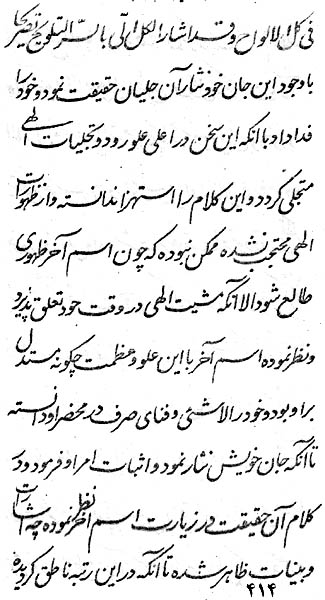 فی کل الالواح و قد اشار الکل الی بالسر التلویح تصریحا
باوجود این جان خود نثار آن جلیان حقیقت نمود و خود را
فدا داد با آنکه این سخن در اعلی علو رود و تجلیات الهی
متجلی گردد و این کلام را استهزا ندانسته و از ظهورات
الهی محتجب نشده ممکن نبوده که چون اسم آخر ظهوری
طالع شود الا آنکه مشیت الهی در وقت خود تعلق پذیرد
و نظر نموده اسم آخر با این علو و عظمت چگونه مستدل
براو بوده و خود را لاشئی و فنای صرف در محضر او دانسته
تا آنکه جان خویش نثار نمود و اثبات امر او فرمود و در
کلام آن حقیقت در زیارت اسم آخر نظر نموده چه اشارات
و بینات ظاهر شده تا آنکه در این رتبه ناطق گردیده
۴۱۴